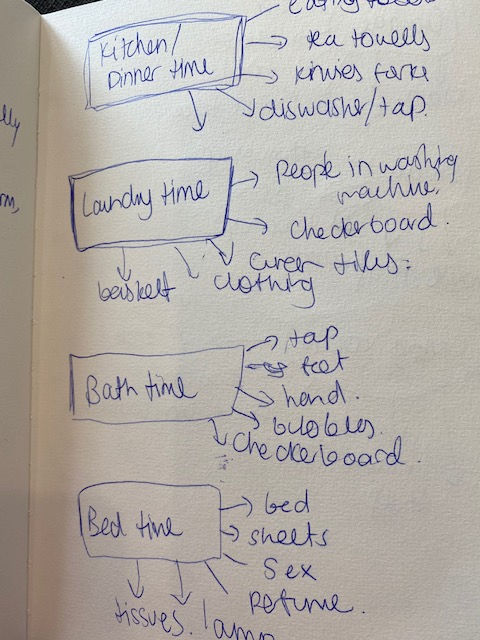 lly
rm,
Kitchen/
Dinner time
tea towells
knives fork
diswasher/tap.
Laundry time
People in washing
machine.
checkerboard.
tiles.
basket
clothing
Bath time
tap
feet
hand.
bubbles.
checkerboard.
Bed time
bed
sheets
Sex
Perfume.
tissues.
lamp